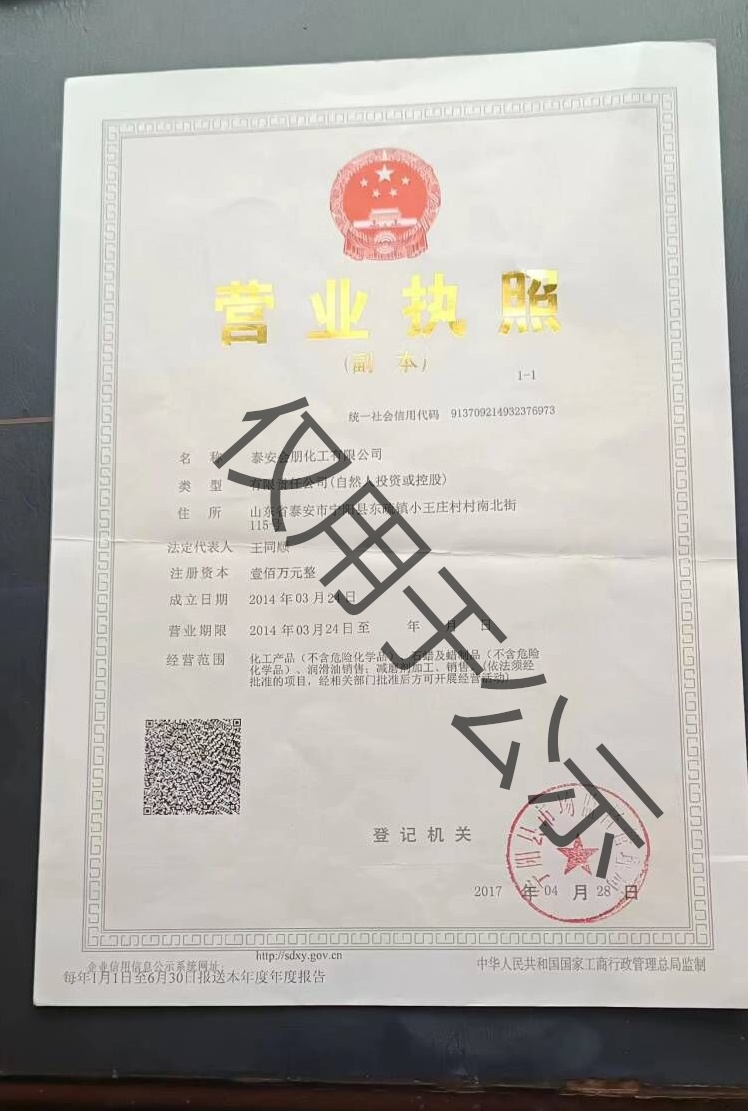 营业执照
(副 本)
1-1
统一社会信用代码 913709214932376973
名 称 泰安会朋化工有限公司
类 型 有限责任公司(自然人投资或控股)
住 所 山东省泰安市宁阳县东疏镇小王庄村村南北街
115-
法定代表人 王同顺
注册资本 壹佰万元整
成立日期 2014 年 03 月 24 日
营业期限 2014 年 03 月 24 日 至 年 月 日
经营范围 化工产品（不含危险化学品）、石蜡及蜡制品（不含危险
化学品）、润滑油销售；减磨剂加工、销售。(依法须经
批准的项目，经相关部门批准后方可开展经营活动)
仅用于公示
登记机关
2017 年 04 月 28 日
http://sdxy.gov.cn
企业信用信息公示系统网址：
每年1月1日至6月30日报送本年度年度报告
中华人民共和国国家工商行政管理总局监制